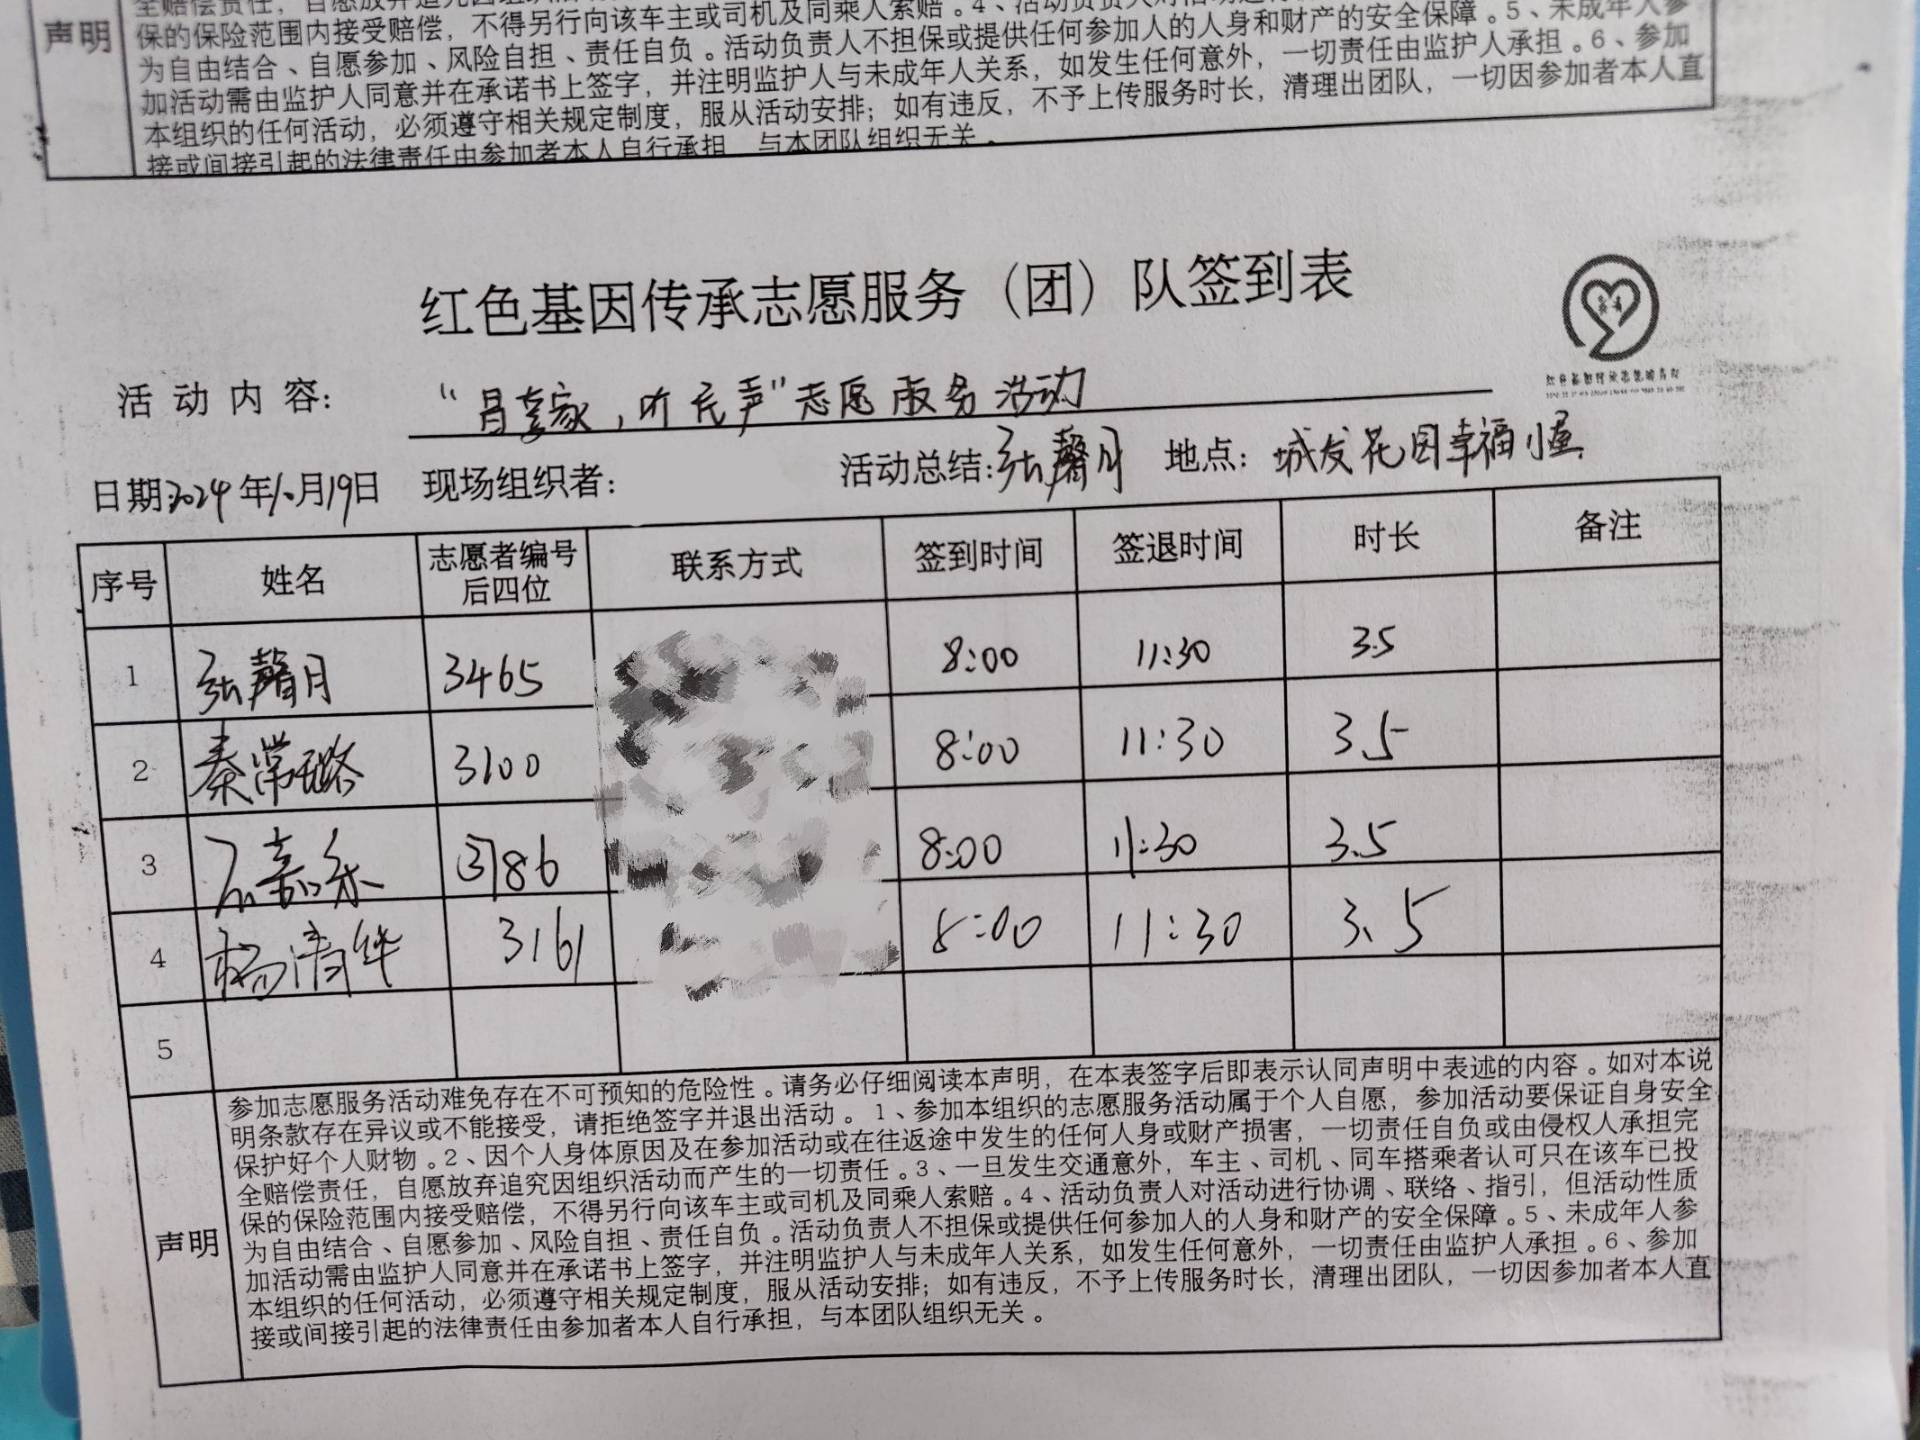 全赔偿责任，自愿放弃追究因组织活动
保的保险范围内接受赔偿，不得另行向该车主或司机及同乘人索赔。4、活动负责人对活动进行
为自由结合、自愿参加、风险自担、责任自负。活动负责人不担保或提供任何参加人的人身和财产的安全保障。5、未成年人参
加活动需由监护人同意并在承诺书上签字，并注明监护人与未成年人关系，如发生任何意外，一切责任由监护人承担。6、参加
本组织的任何活动，必须遵守相关规定制度，服从活动安排；如有违反，不予上传服务时长，清理出团队，一切因参加者本人直
接或间接引起的法律责任由参加者本人自行承担，与本团队组织无关。
声明
红色基因传承志愿服务（团）队签到表
活动内容： “昌裏家，听民声”志愿服务活动
日期2024年10月19日 现场组织者： 活动总结：张馨月 地点：城发花园幸福小屋
序号 姓名 志愿者编号后四位 联系方式 签到时间 签退时间 时长 备注
1 张馨月 3465 8:00 11:30 3.5
2 秦常璐 3100 8:00 11:30 3.5
3 石嘉乐 3186 8:00 11:30 3.5
4 杨清华 3161 8:00 11:30 3.5
5
声明
参加志愿服务活动难免存在不可预知的危险性。请务必仔细阅读本声明，在本表签字后即表示认同声明中表述的内容。如对本说
明条款存在异议或不能接受，请拒绝签字并退出活动。1、参加本组织的志愿服务活动属于个人自愿，参加活动要保证自身安全
保护好个人财物。2、因个人身体原因及在参加活动或在往返途中发生的任何人身或财产损害，一切责任自负或由侵权人承担完
全赔偿责任，自愿放弃追究因组织活动而产生的一切责任。3、一旦发生交通意外，车主、司机、同车搭乘者认可只在该车已投
保的保险范围内接受赔偿，不得另行向该车主或司机及同乘人索赔。4、活动负责人对活动进行协调、联络、指引，但活动性质
为自由结合、自愿参加、风险自担、责任自负。活动负责人不担保或提供任何参加人的人身和财产的安全保障。5、未成年人参
加活动需由监护人同意并在承诺书上签字，并注明监护人与未成年人关系，如发生任何意外，一切责任由监护人承担。6、参加
本组织的任何活动，必须遵守相关规定制度，服从活动安排；如有违反，不予上传服务时长，清理出团队，一切因参加者本人直
接或间接引起的法律责任由参加者本人自行承担，与本团队组织无关。